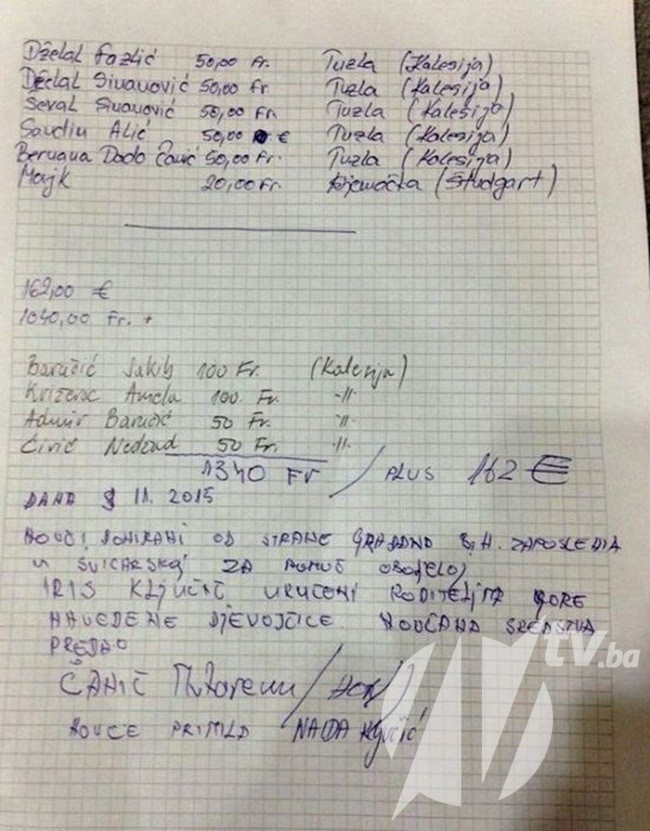 Dželal Fazlić 50,00 Fr. Tuzla (Kalesija)
Dželal Sinanović 50,00 Fr. Tuzla (Kalesija)
Seval Sinanović 50,00 Fr. Tuzla (Kalesija)
Saudin Alić 50,00 € Tuzla (Kalesija)
Bervana Dado Čanić 50,00 Fr. Tuzla (Kalesija)
Majk 20,00 Fr. Njemačka (Študgart)
162,00 €
1040,00 Fr. +
Baručić Jakib 100 Fr. (Kalesija)
Križevac Amela 100. Fr. -||-
Admir Baručić 50 Fr. -||-
Ćivić Nedžad 50 Fr. -||-
1340 Fr / PLUS 162 €
DANA 11. 2015
NOVCI DONIRANI OD STRANE GRAĐANA B.H. ZAPOSLENIH
U ŠVICARSKOJ ZA POMOĆ OBOLJELOJ
IRIS KLJUČIĆ URUČENI RODITELJIMA GORE
NAVEDENE DJEVOJČICE. NOVČANA SREDSTVA
PREDAO
ČANIĆ
NOVCE PRIMILA NAĐA Ključić
tv.ba